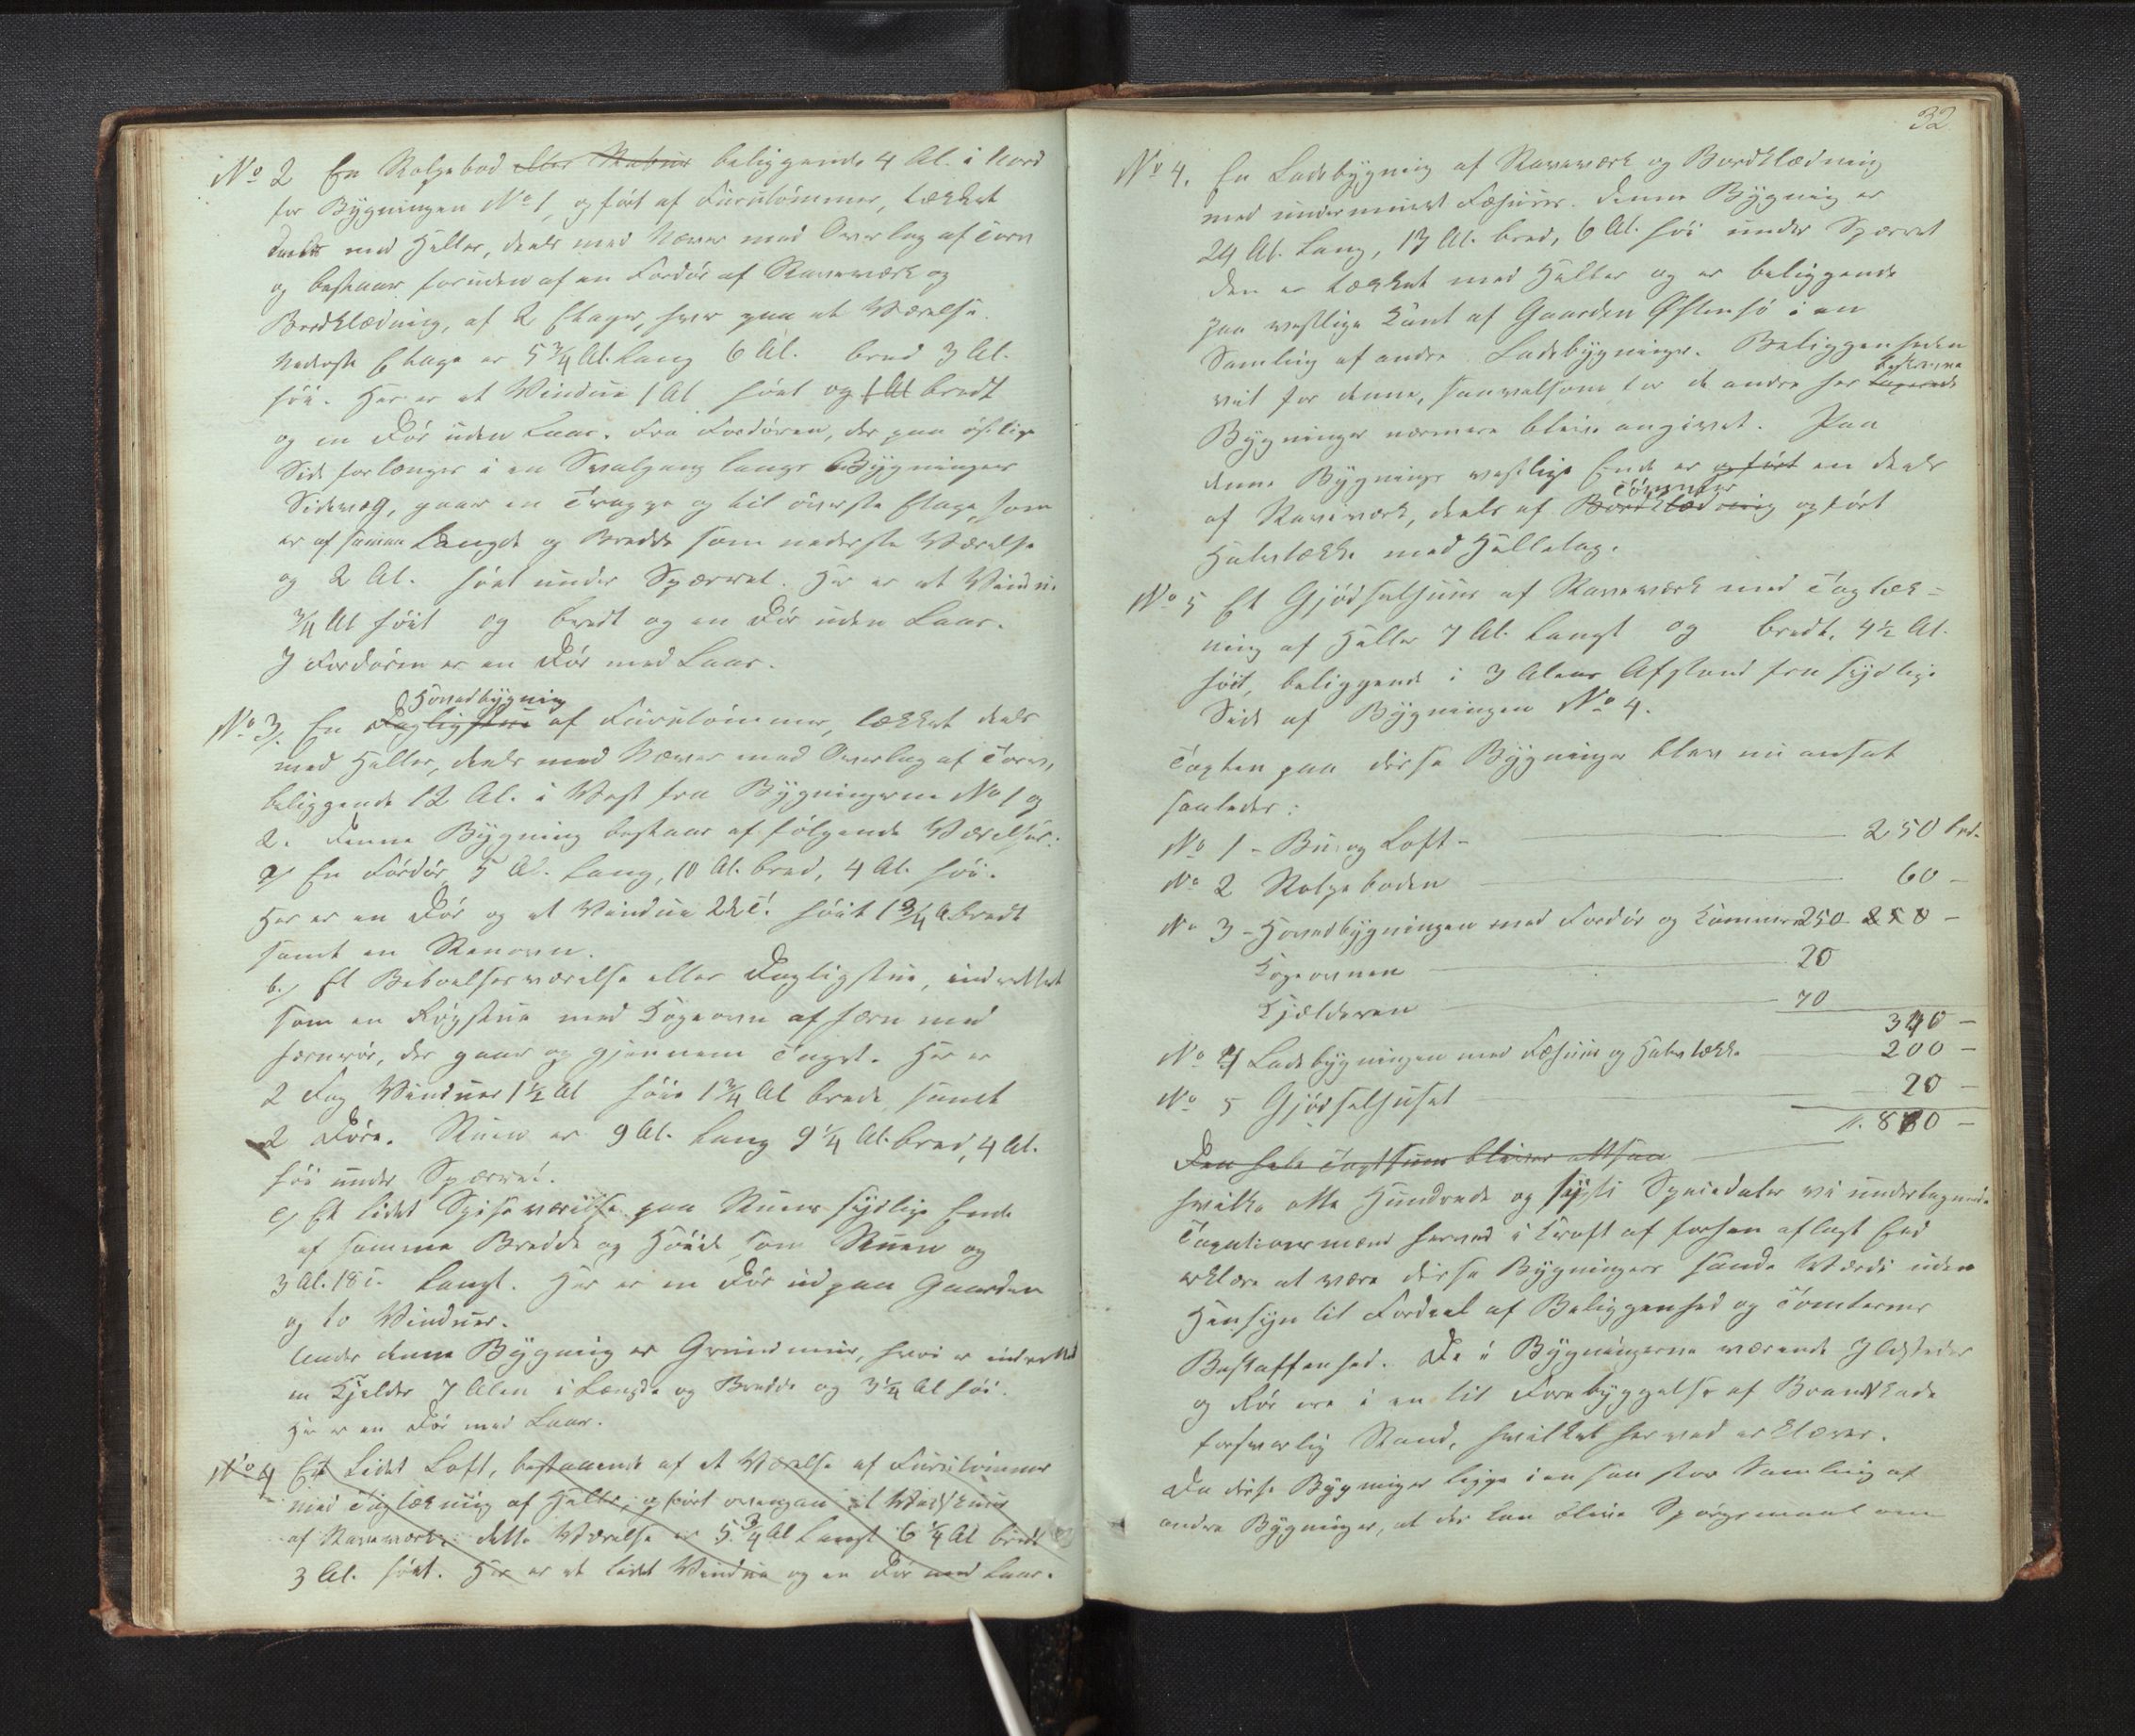 No 2 En Stolpebod eller Stabur beliggende 4 Al. i Nord
for Bygningen No 1, opført af Furutømmer, tækket
deels med Heller, deels med Næver med Overlag af Torv
og bestaar foruden af en Fordør af Staveværk og
Bordklædning, af 2 Etager, hver paa et Værelse.
Nederste Etage er 5 3/4 Al. lang 6 Al. bred 3 Al.
høi. Her er et Vindue 1 Al høit og 1 Al bredt
og en Dør uden Laas. Fra Fordøren, der paa østlige
Side forlænges i en Svalgang langs Bygningens
Sidevæg, gaar en Trappe op til øverste Etage, som
er af samme Længde og Bredde som nederste Værelse
og 2 Al. høit under Spærret. Her er et Vindue
3/4 Al høit og bredt og en Dør uden Laas.
I Fordøren er en Dør med Laas.
Hovedbygning
No 3/. En Dagligstue af Furutømmer, tækket deels
med Heller, deels med Næver med Overlag af Torv,
beliggende 12 Al. i Vest fra Bygningerne No 1 og
2. Denne Bygning bestaar af følgende Værelser:
a/ En Fordør, 5 Al. lang, 10 Al. bred, 4 Al. høi.
Her er en Dør og et Vindue 22 T. høit 1 3/4 Al. bredt
samt en Steenovn.
b./ Et Beboelsesværelse eller Dagligstue, indrettet
som en Røgstue med Kogeovn af Jern med
Jernrør, der gaar op gjennem Taget. Her er
2 Fag Vinduer 1 1/2 Al høie 1 3/4 Al brede, samt
2 Døre. Stuen er 9 Al. lang 9 1/4 Al. bred, 4 Al.
høi under Spærret.
c/ Et lidet Spiseværelse paa Stuens sydlige Ende
af samme Bredde og Høide som Stuen og
3 Al. 18 T. langt. Her er en Dør ud paa Gaarden
og to Vinduer.
Under denne Bygning er Grundmuur, hvori er indrettet
en Kjelder 7 Alen i Længde og Bredde og 3 1/4 Al høi.
Her er en Dør med Laas.
No 4 Et lidet Loft, bestaaende af et Værelse af Furutømmer
med Taglækning af Heller, opført ovenpaa et
af Staveværk. dette Værelse er 5 3/4 Al langt 6 1/4 Al bredt
3 Al. høit. Her er et lidet Vindue og en Dør med Laas.
32
No 4. En Ladebygning af Staveværk og Bordklædning
med undermuret Fæhuus. Denne Bygning er
24 Al. lang, 13 Al. bred, 6 Al. høi under Spærret
Den er tækket med Heller og er beliggende
paa vestlige Kant af Gaarden Østensø i en
Samling af andre Ladebygninger. Beliggenheden
beskrevne
vil for denne, saavelsom for de andre her taxerede
Bygninger nærmere blive angivet. Paa
denne Bygnings vestlige Ende er opført en deels
Tømmer
af Staveværk, deels af Bordklædning opført
Halvtække med Hellelag.
No 5 Et Gjødselhuus af Staveværk med Taglæk=
ning af Heller 7 Al. langt og bredt, 4 1/2 Al.
høit, beliggende i 3 Alens Afstand fra sydlige
Side af Bygningen No 4.
Taxten paa disse Bygninger blev nu ansat
saaledes:
No 1 - Bu og Loft - 250 Spd.
No 2 Stolpeboden 60 -
No 3 - Hovedbygningen med Fordør og Kammer 250 250 -
Kogeovnen 20
Kjælderen 70
340 -
No 4 Ladebygningen med Fæhuus og Halvtække 200 -
No 5 Gjødselhuset 20 -
870 -
Den hele Taxtsum bliver altsaa
hvilke otte Hundrede og sytti Speciedaler vi undertegnede
Taxationsmænd herved i Kraft af forhen aflagt Eed
erklære at være disse Bygningers sande Værdi uden
Hensyn til Fordeel af Beliggenhed og Tomternes
Beskaffenhed. De i Bygningerne værende Ildsteder
og Rør ere i en til Forebyggelse af Brandskade
forsvarlig Stand, hvilket herved erklæres.
Da disse Bygninger ligge i en saa stor Samling af
andre Bygninger, at der kan blive Spørgsmaal om